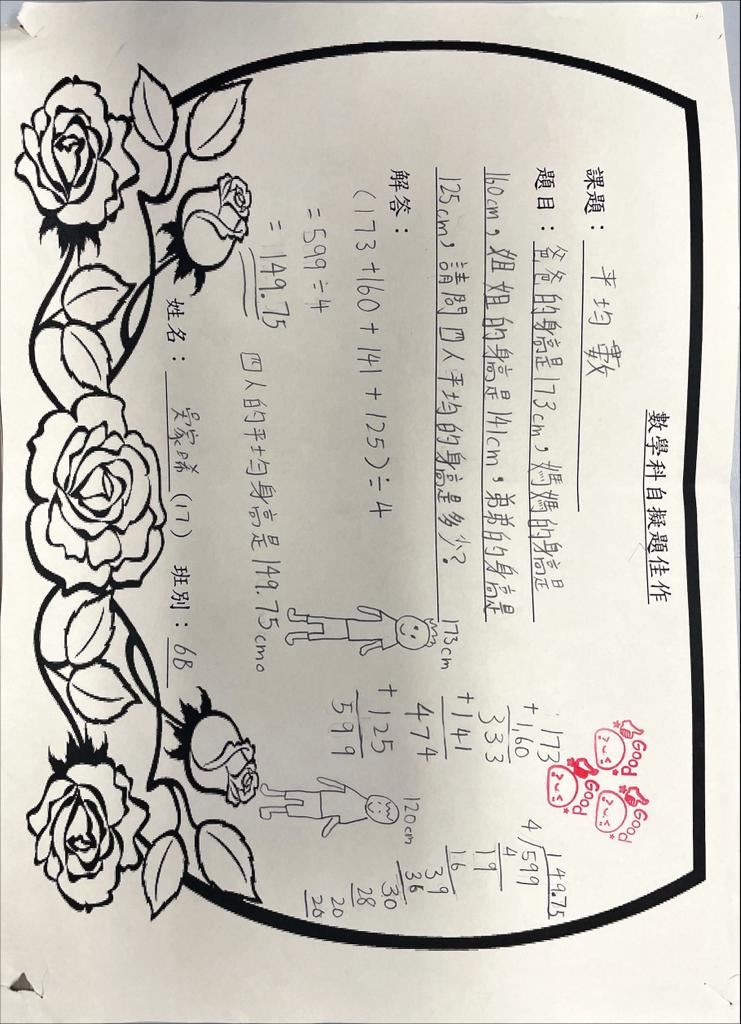 數學科自擬題佳作
課題：平均數
題目：爸爸的身高是173cm，媽媽的身高是
160cm，姐姐的身高是141cm，弟弟的身高是
125cm，請問四人平均的身高是多少？
解答：
(173+160+141+125)÷4
=599÷4
=149.75
四人的平均身高是149.75cm。
173
+160
333
+141
474
+125
599
149.75
4√599
4
19
16
39
36
30
28
20
20
173cm
120cm
Good
Good
Good
姓名：吳家晞(17) 班別：6B